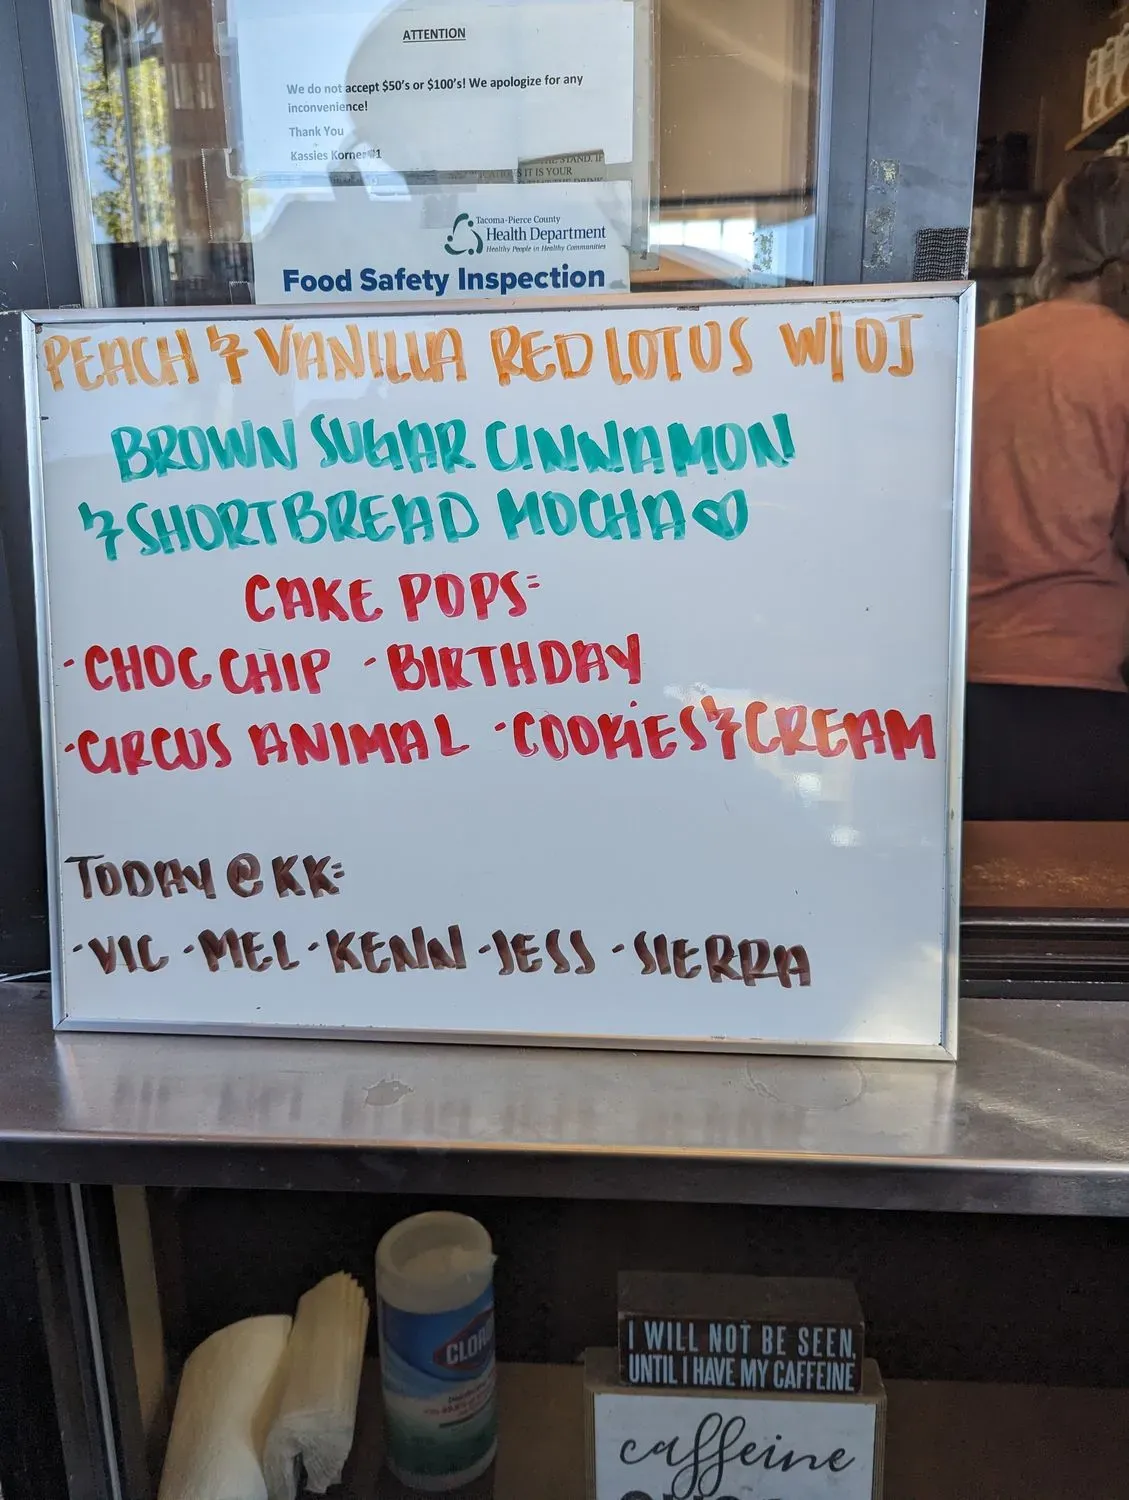 ATTENTION
We do not accept $50's or $100's! We apologize for any
inconvenience!
Thank You
Kassies Korner #1
THE STAND. IF
IT IS YOUR
Tacoma-Pierce County
Health Department
Healthy People in Healthy Communities
Food Safety Inspection
PEACH & VANILLA RED LOTUS W/ OJ
BROWN SUGAR CINNAMON
& SHORTBREAD MOCHA
CAKE POPS:
·CHOC CHIP ·BIRTHDAY
·CIRCUS ANIMAL ·COOKIES & CREAM
TODAY @ KK:
·VIC ·MEL ·KENN ·JESS ·SIERRA
CLORO
I WILL NOT BE SEEN,
UNTIL I HAVE MY CAFFEINE
caffeine